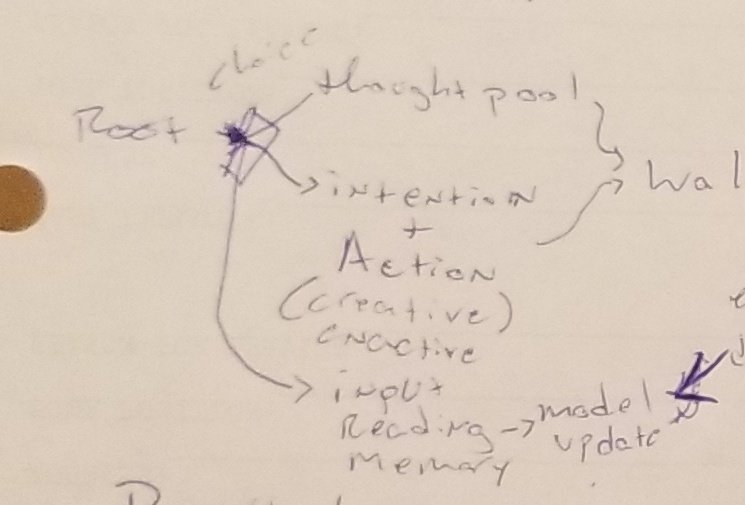 choice
thought pool
Root
intention
+
Action
(creative)
enactive
input
Reading → model
update
Memory